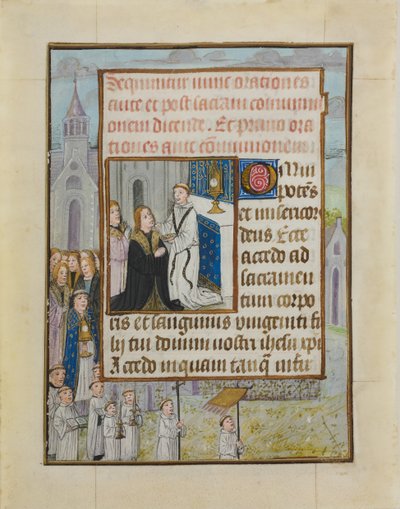 Sequuntur nunc orationes
ante et post sacram communi
onem dicende. Et primo ora
tiones ante communionem
Omni
potẽs
et misericor
deus. Ecce
accedo ad
sacramen
tum corpo
ris et sanguinis unigeniti fi
lij tui domini nostri ihesu xpi
Accedo inquam tanq̃ infir